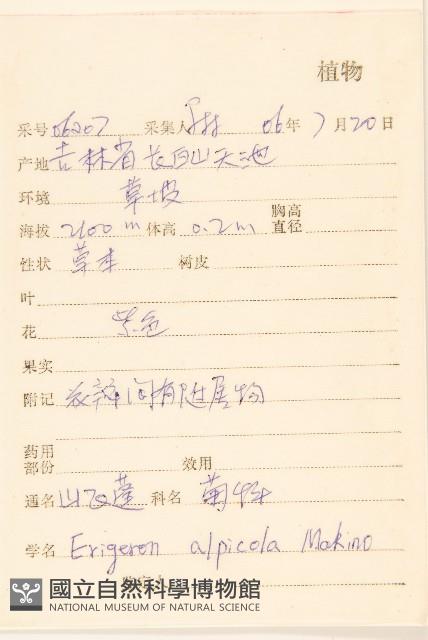 植物
采号 06207 采集人 06年7月20日
产地 吉林省长白山天池
环境 草坡
海拔 2100 m 体高 0.2 m 胸高直径
性状 草本 树皮
叶
花 紫色
果实
附记 花瓣间有附属物
药用部份 效用
通名 山飞蓬 科名 菊科
学名 Erigeron alpicola Makino
國立自然科學博物館
NATIONAL MUSEUM OF NATURAL SCIENCE